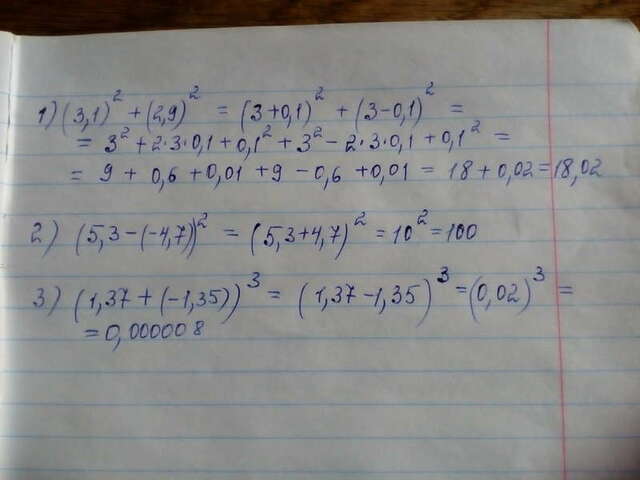 1) (3,1)² + (2,9)² = (3+0,1)² + (3-0,1)² =
= 3² + 2·3·0,1 + 0,1² + 3² - 2·3·0,1 + 0,1² =
= 9 + 0,6 + 0,01 + 9 - 0,6 + 0,01 = 18 + 0,02 = 18,02
2) (5,3-(-4,7))² = (5,3+4,7)² = 10² = 100
3) (1,37 + (-1,35))³ = (1,37-1,35)³ = (0,02)³ =
= 0,000008